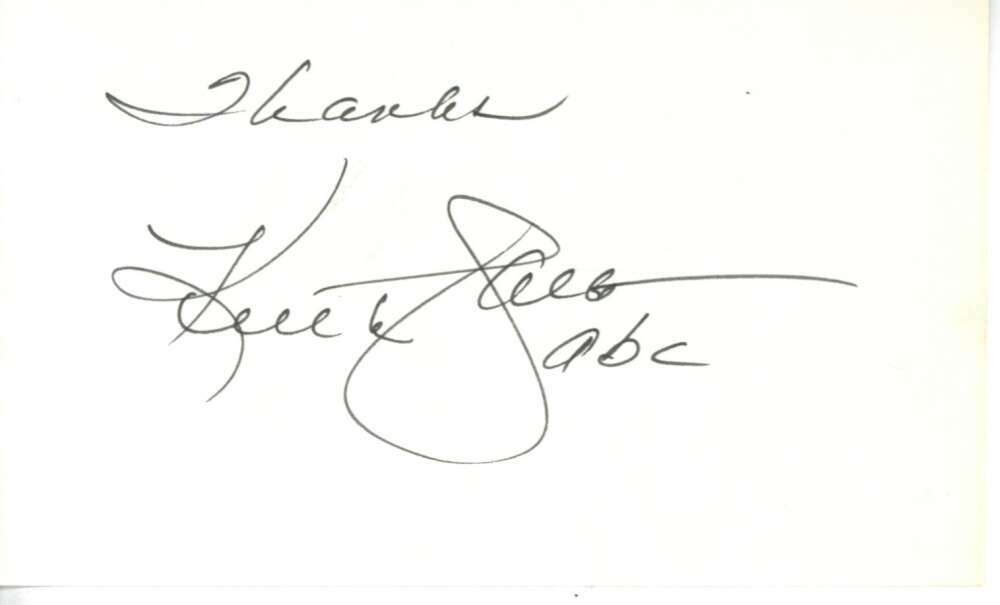 Thanks
Keith Jackson
abc